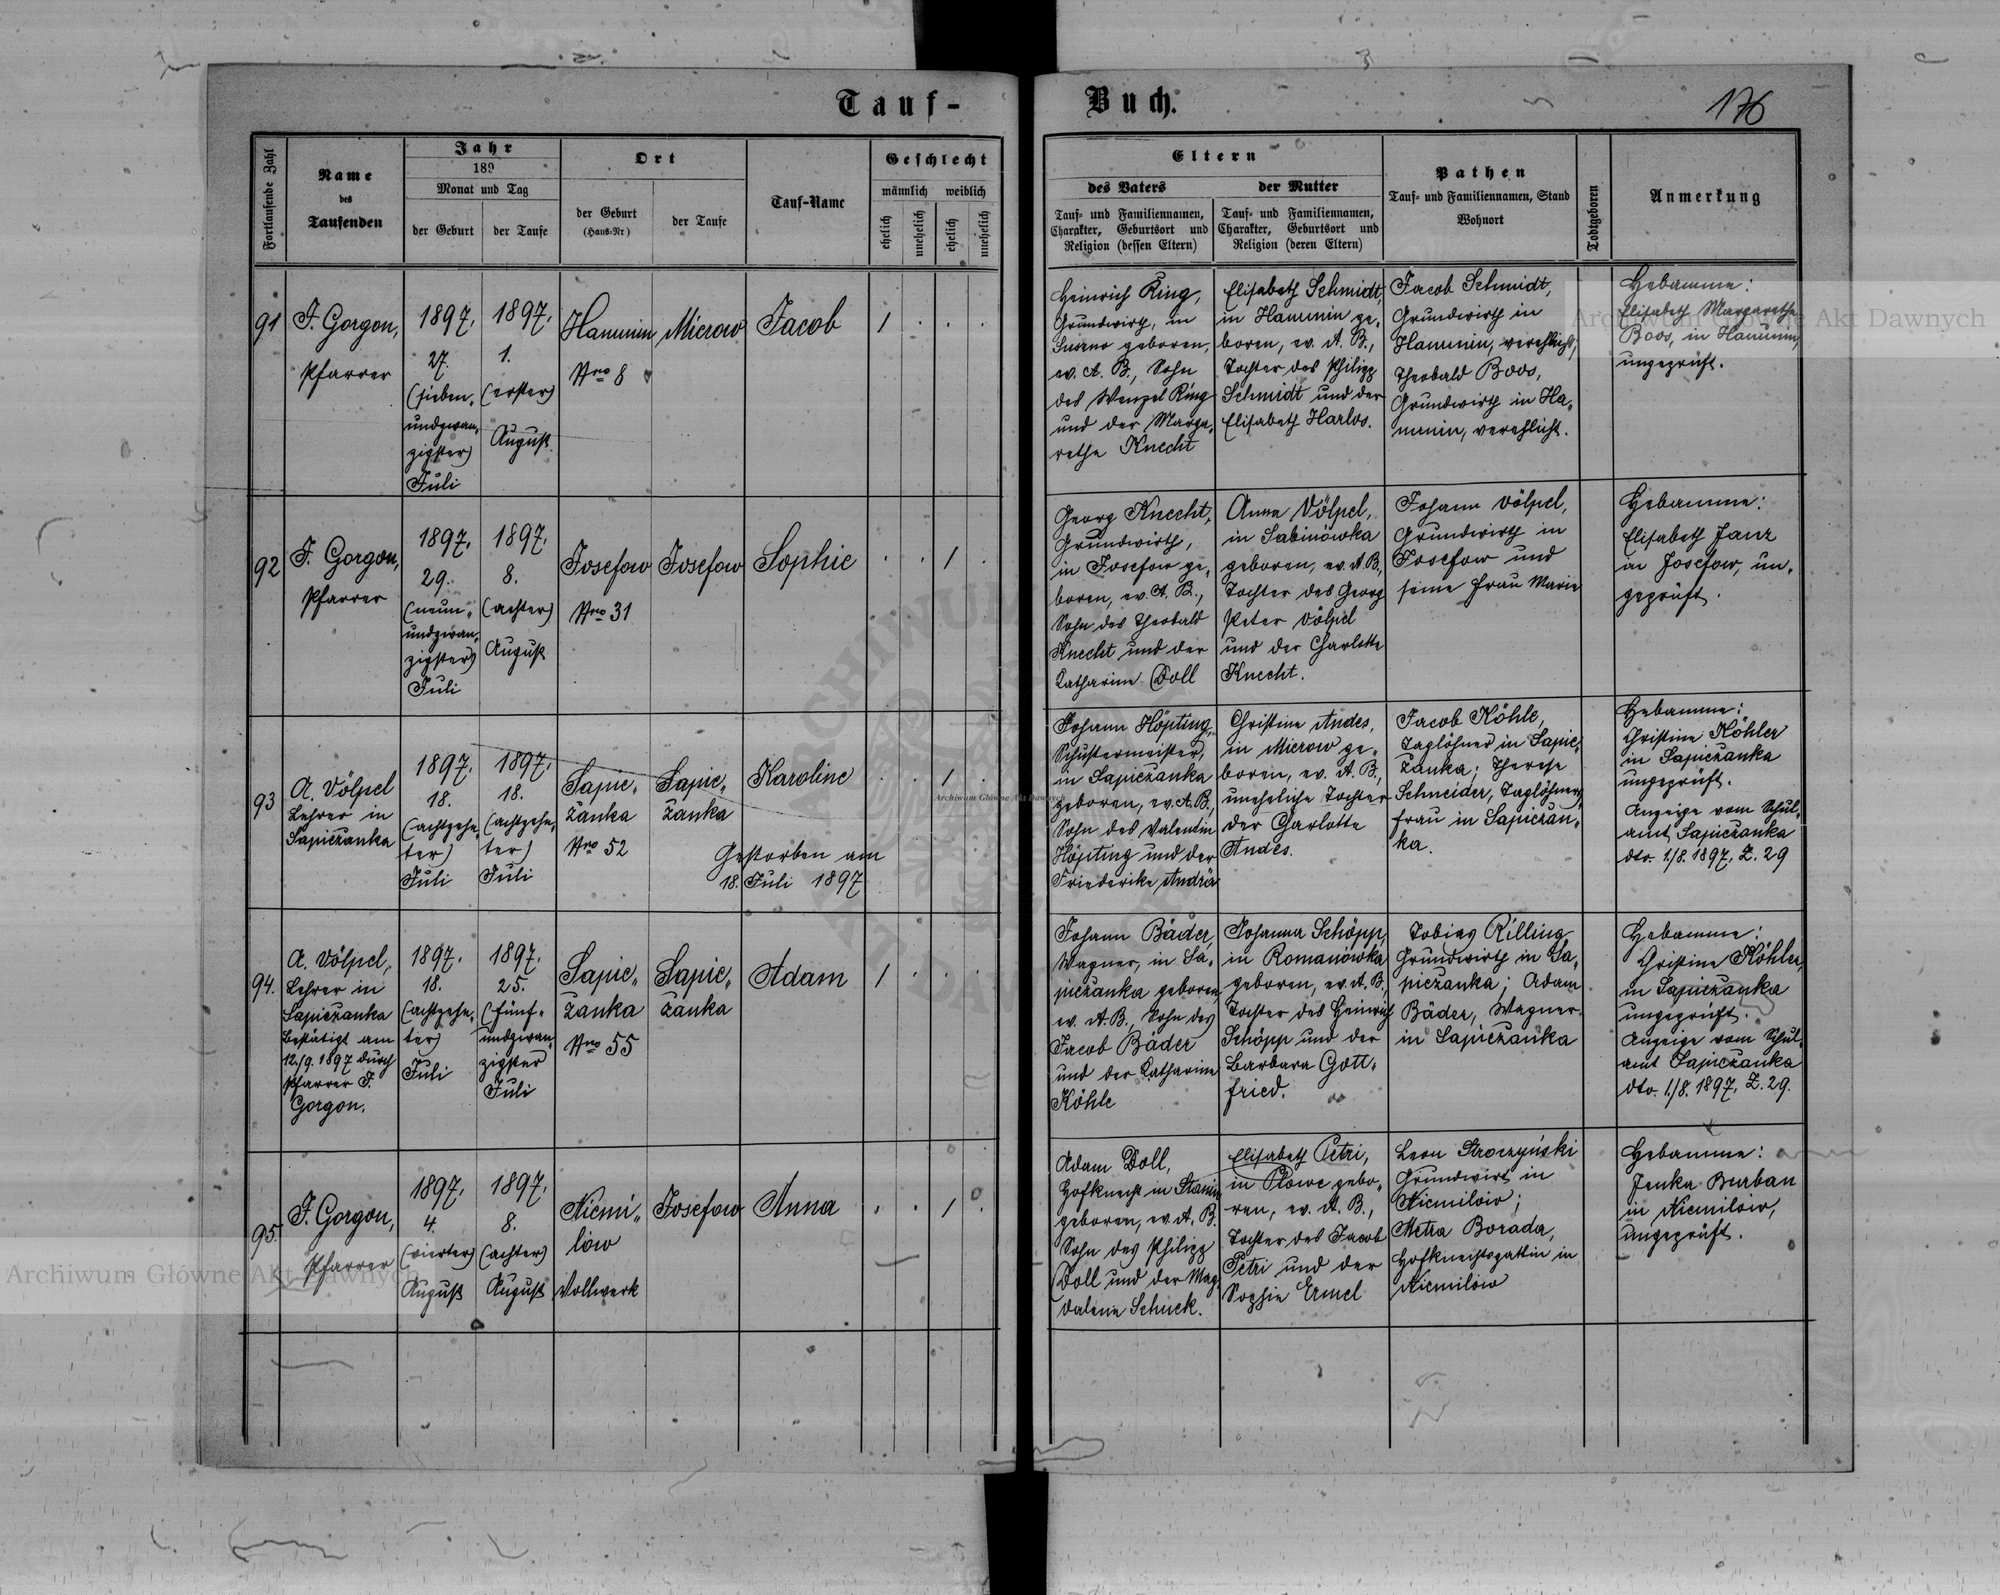 Tauf-Buch.
176
Fortlaufende Zahl
Name
des
Taufenden
Jahr
189
Monat und Tag
der Geburt
der Taufe
Ort
der Geburt
(Haus-Nr)
der Taufe
Tauf-Name
Geschlecht
männlich weiblich
ehelich
unehelich
ehelich
unehelich
Eltern
des Vaters
Tauf- und Familiennamen,
Charakter, Geburtsort und
Religion (dessen Eltern)
der Mutter
Tauf- und Familiennamen,
Charakter, Geburtsort und
Religion (deren Eltern)
Pathen
Tauf- und Familiennamen, Stand
Wohnort
Todtgeboren
Anmerkung
91
F. Gorgon,
Pfarrer
1897.
27.
(sieben-
undzwan-
zigster)
Juli
1897.
1.
(erster)
August
Hanunin
Nro 8
Microw
Jacob
1
Heinrich Ring,
Grundwirth, in
geboren,
ev. A. B., Sohn
des Wenzel Ring
und der Marga-
rethe Knecht
Elisabeth Schmidt,
in Hanunin ge-
boren, ev. A. B.,
Tochter des Philipp
Schmidt und der
Elisabeth Harlos.
Jacob Schmidt,
Grundwirth in
Hanunin, verehlicht,
Theobald Boos,
Grundwirth in Ha-
nunin, verehlicht.
Hebamme:
Elisabeth Margarethe
Boos, in Hanunin,
ungeprüft.
92
F. Gorgon,
Pfarrer
1897.
29.
(neun-
undzwan-
zigster)
Juli
1897.
8.
(achter)
August
Josefow
Nro 31
Josefow
Sophie
1
Georg Knecht,
Grundwirth,
in Josefow ge-
boren, ev. A. B.,
Sohn des Theobald
Knecht und der
Katharine Doll
Anna Völpel,
in Sabinówka
geboren, ev. A B,
Tochter des Georg
Peter Völpel
und der Charlotte
Knecht.
Johann Völpel,
Grundwirth in
Josefow und
seine Frau Marie
Hebamme:
Elisabeth Janz
in Josefow, un-
geprüft.
93
A. Völpel
Lehrer in
Sapieżanka
1897.
18.
(achtzehn-
ter)
Juli
1897.
18.
(achtzehn-
ter)
Juli
Sapie-
żanka
Nro 52
Sapie-
żanka
Karoline
Gestorben am
18. Juli 1897
1
Johann Höpting,
Schustermeister,
in Sapieżanka
geboren, ev. A. B.,
Sohn des Valentin
Höpting und der
Friederike Andrée
Christine Andes,
in Microw ge-
boren, ev. A. B.,
uneheliche Tochter
der Charlotte
Andes.
Jacob Köhle,
Taglöhner in Sapie-
żanka; Therese
Schneider, Taglöhners
frau in Sapieżan-
ka.
Hebamme:
Christine Köhler
in Sapieżanka
ungeprüft.
Anzeige vom Schul-
amt Sapieżanka
dto. 1./8. 1897, Z. 29
94.
A. Völpel,
Lehrer in
Sapieżanka
Bestätigt am
12./9. 1897 durch
Pfarrer F.
Gorgon.
1897.
18.
(achtzehn-
ter)
Juli
1897.
25.
(fünf-
undzwan-
zigster
Juli
Sapie-
żanka
Nro 55
Sapie-
żanka
Adam
1
Johann Bäder,
Wagner, in Sa-
pieżanka geboren,
ev. A. B., Sohn des
Jacob Bäder
und der Katharine
Köhle
Johanna Schöpp,
in Romanówka
geboren, ev. A. B.,
Tochter des Heinrich
Schöpp und der
Barbara Gott-
fried.
Tobias Rilling
Grundwirth in Sa-
pieżanka; Adam
Bäder, Wagner
in Sapieżanka
Hebamme:
Christine Köhler,
in Sapieżanka
ungeprüft.
Anzeige vom Schul-
amt Sapieżanka
dto. 1./8. 1897, Z. 29.
95.
F. Gorgon,
Pfarrer
1897.
4.
(vierter)
August
1897.
8.
(achter)
August
Niemi-
low
Vollwerk
Josefow
Anna
1
Adam Doll,
Hofknecht in Stanin
geboren, ev. A. B.
Sohn des Philipp
Doll und der Mag-
dalene Schuck.
Elisabeth Petri,
in Płowe gebo-
ren, ev. A. B.,
Tochter des Jacob
Petri und der
Sophie Ermel
Leon Stroczyński
Grundwirt in
Niemiłów;
Metra Borada,
Hofknechtsgattin in
Niemiłów
Hebamme:
Jenka Burban
in Niemiłów,
ungeprüft.
Archiwum Główne Akt Dawnych
Archiwum Główne Akt Dawnych
Archiwum Główne Akt Dawnych